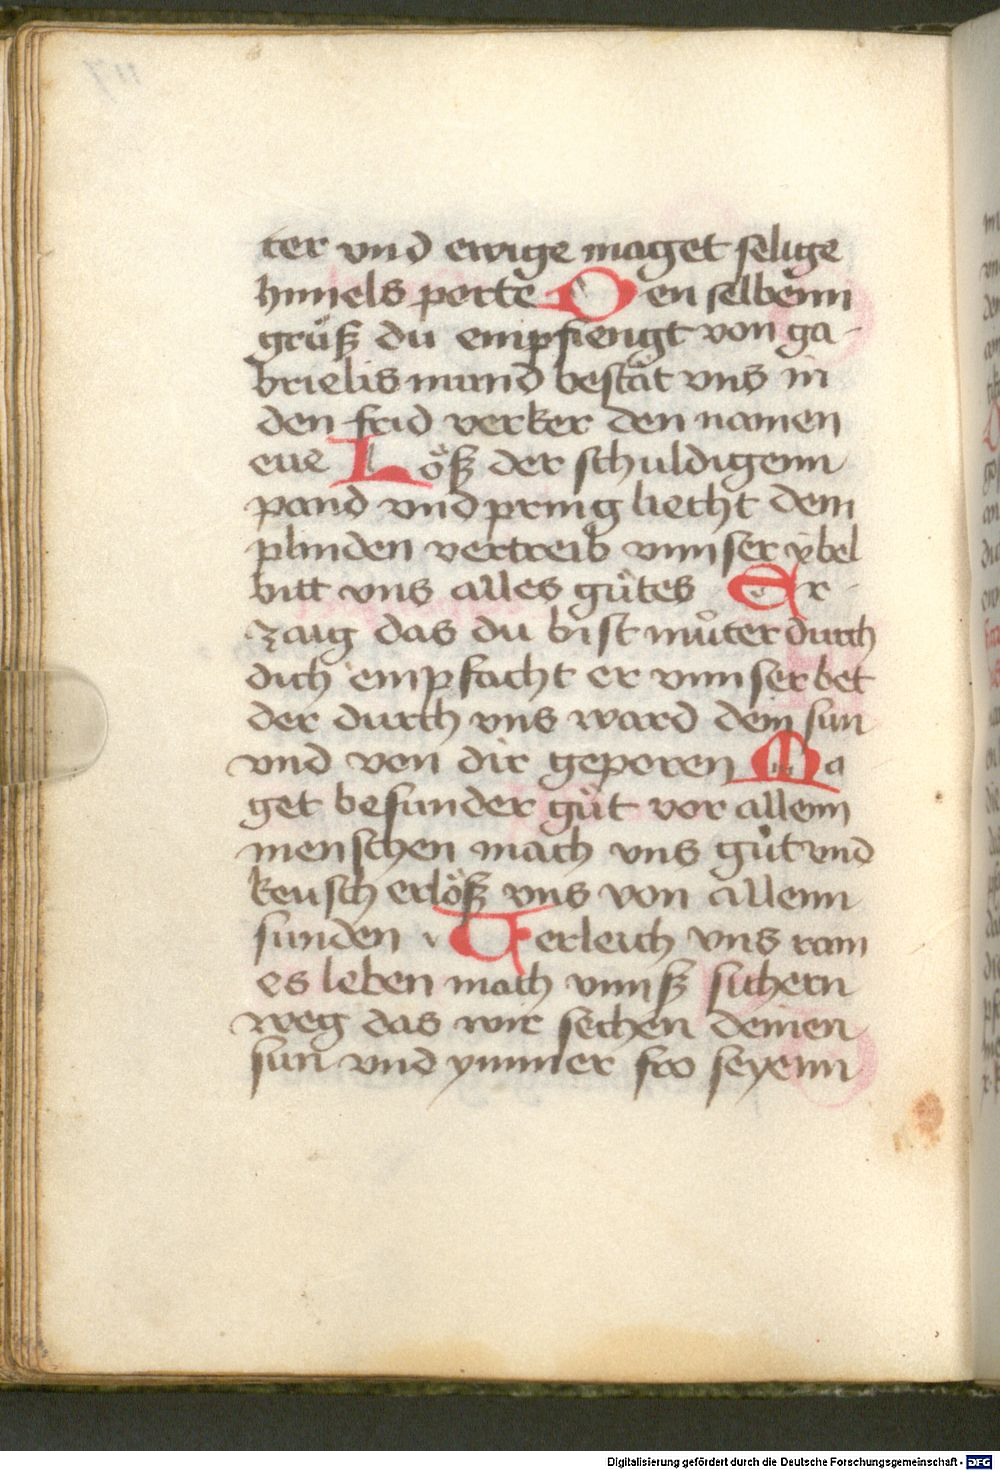 ter vnd ewige maget selige
himels porte Den selbenn
grüß du empfiengt von ga-
brielis mund bestät vns in
den frid verker den namen
eue Löß der schuldigenn
pand vnd pring liecht dem
plinden vertreib vnnser ybel
bitt vns alles gůtes Er-
zaig das du bist můter durch
dich empfacht er vnnser bet
der durch vns ward dein sun
vnd von dir geporen Ma
get besunder gůt vor allenn
menschen mach vns gůt vnd
keusch erlöß vns von allenn
sunden Verleich vns rain
es leben mach vnnß sichern
weg das wir sechen deinen
sun vnd ymmer fro seyenn
Digitalisierung gefördert durch die Deutsche Forschungsgemeinschaft - DFG